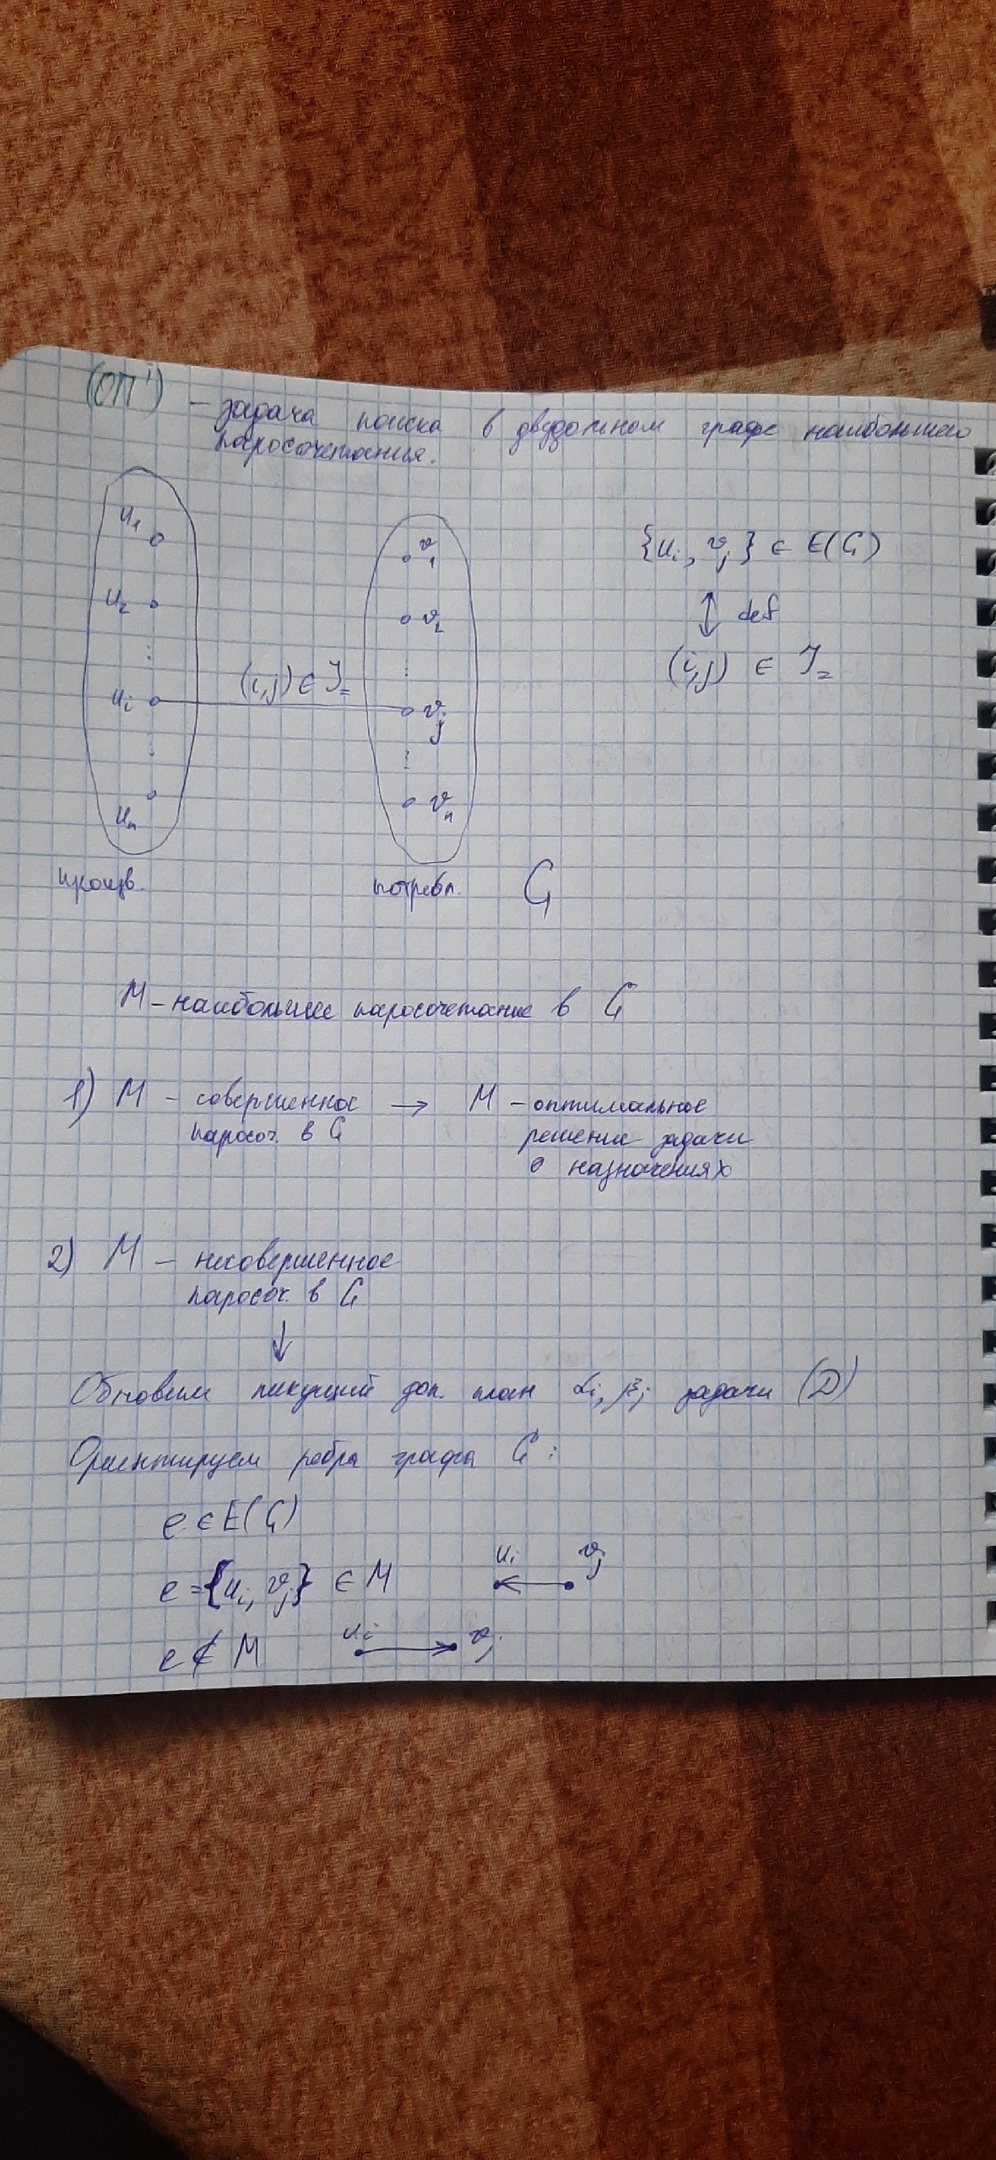 (ОП') – задача поиска в двудольном графе наибольшего
паросочетания.
u₁
v₁
{uᵢ, vⱼ} ∈ E(G)
u₂
v₂
↕ def
⋮
(i,j) ∈ J₌
⋮
(i,j) ∈ J₌
uᵢ
vⱼ
⋮
⋮
uₙ
vₙ
произв.
потребл.
G
M – наибольшее паросочетание в G
1) M – совершенное → M – оптимальное
паросоч. в G
решение задачи
о назначениях
2) M – несовершенное
паросоч. в G
↓
Обновим текущий доп. план αᵢ, βⱼ задачи (D)
Ориентируем ребра графа G:
e ∈ E(G)
e = {uᵢ, vⱼ} ∈ M
uᵢ ← vⱼ
e ∉ M
uᵢ → vⱼ